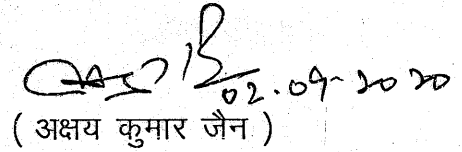 02.09-2020
( अक्षय कुमार जैन )